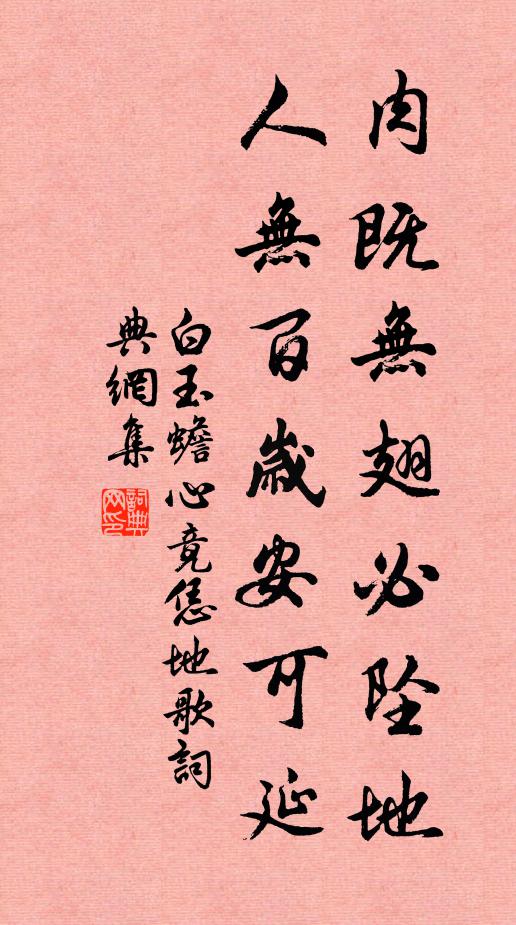 肉既無翅必墜地
人無百歲安可延
白玉蟾心竟恁地歌詞
典網集
詞典網印